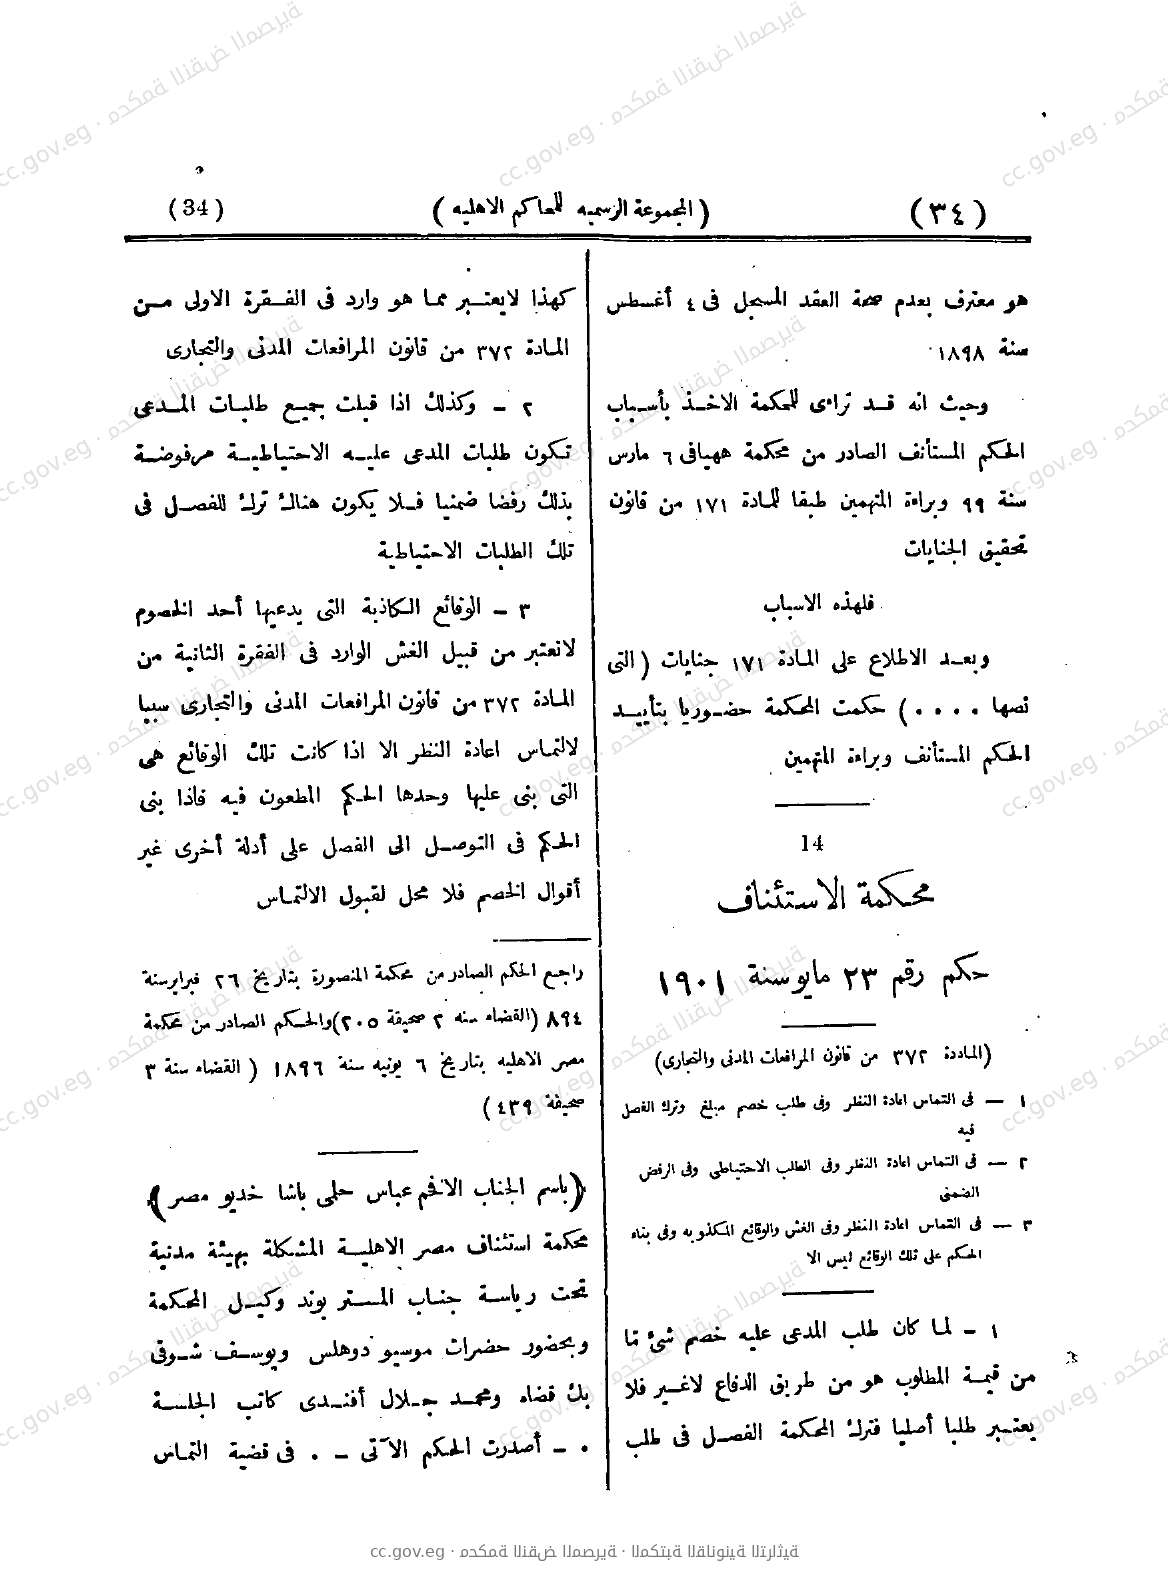 (٣٤)
(المجموعة الرسميه للمحاكم الاهليه)
(34)
هو معترف بعدم صحة العقد المسجل فى ٤ أغسطس
سنة ١٨٩٨
وحيث انه قد تراءى للمحكمة الاخذ بأسباب
الحكم المستأنف الصادر من محكمة ههيا فى ٦ مارس
سنة ٩٩ وبراءة المتهمين طبقا للمادة ١٧١ من قانون
تحقيق الجنايات
فلهذه الاسباب
وبعد الاطلاع على المادة ١٧١ جنايات (التى
نصها ....) حكمت المحكمة حضوريا بتأييد
الحكم المستأنف وبراءة المتهمين
14
محكمة الاستئناف
حكم رقم ٢٣ مايو سنة ١٩٠١
(الماددة ٣٧٢ من قانون المرافعات المدنى والتجارى)
١ — فى التماس اعادة النظر وفى طلب خصم مبلغ وترك الفصل
فيه
٢ — فى التماس اعادة النظر وفى الطلب الاحتياطى وفى الرفض
الضمنى
٣ — فى التماس اعادة النظر وفى الغش والوقائع المكذوبه وفى بناء
الحكم على تلك الوقائع ليس الا
١ - لما كان طلب المدعى عليه خصم شئ تا
من قيمة المطلوب هو من طريق الدفاع لاغير فلا
يعتبر طلبا أصليا فترك المحكمة الفصل فى طلب
كهذا لايعتبر مما هو وارد فى الفقرة الاولى من
المادة ٣٧٢ من قانون المرافعات المدنى والتجارى
٢ - وكذلك اذا قبلت جميع طلبات المدعى
تكون طلبات المدعى عليه الاحتياطية مرفوضة
بذلك رفضا ضمنيا فلا يكون هنالك ترك للفصل فى
تلك الطلبات الاحتياطية
٣ - الوقائع الكاذبة التى يدعيها أحد الخصوم
لاتعتبر من قبيل الغش الوارد فى الفقرة الثانية من
المادة ٣٧٢ من قانون المرافعات المدنى والتجارى سببا
لالتماس اعادة النظر الا اذا كانت تلك الوقائع هى
التى بنى عليها وحدها الحكم المطعون فيه فاذا بنى
الحكم فى التوصل الى الفصل على أدلة أخرى غير
أقوال الخصم فلا محل لقبول الالتماس
راجع الحكم الصادر من محكمة المنصورة بتاريخ ٢٦ فبراير سنة
٨٩٤ (القضاء سنه ٢ صحيفة ٢٠٥) والحكم الصادر من محكمة
مصر الاهليه بتاريخ ٦ يونيه سنة ١٨٩٦ (القضاء سنة ٣
صحيفة ٤٣٩)
(باسم الجناب الافخم عباس حلمى باشا خديو مصر)
محكمة استئناف مصر الاهلية المشكلة بهيئة مدنية
تحت رياسة جناب المستر بوند وكيل المحكمة
وبحضور حضرات موسيو دوهلس ويوسف شوقى
بك قضاه ومحمد جلال أفندى كاتب الجلسة
٠ - أصدرت الحكم الآتى - ٠ فى قضية التماس
cc.gov.eg · محكمة النقض المصرية · المكتبة القانونية التراثية